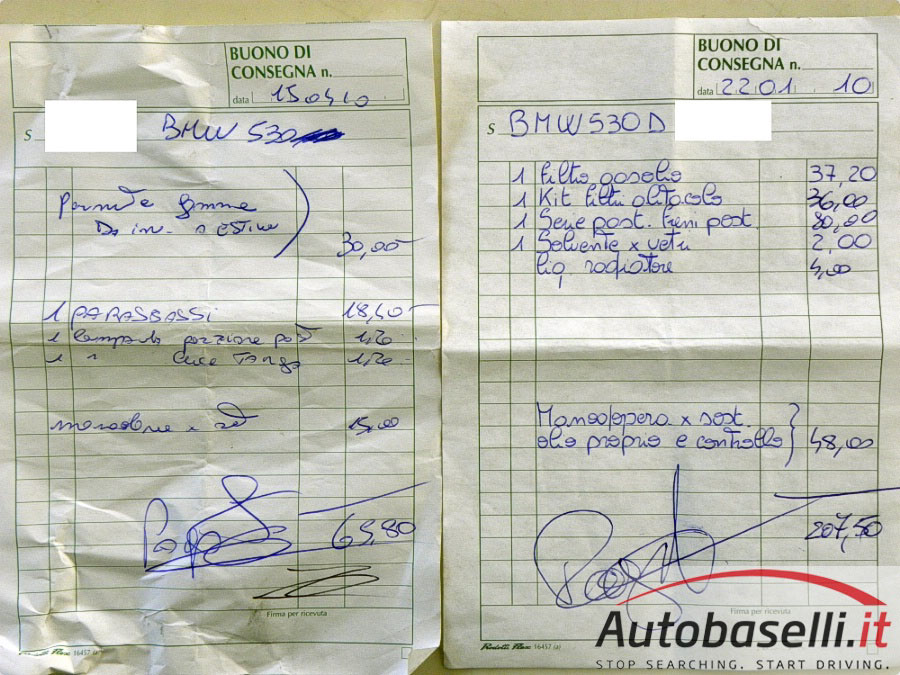 BUONO DI
CONSEGNA n.
data 15 04 10
S BMW 530
30,00
1 PARASASSI 18,40
1 1,20
1 " luce Targa 1,20
15,00
65,80
Firma per ricevuta
16457 (a)
BUONO DI
CONSEGNA n.
data 22 01 10
S BMW 530 D
1 Filtro gasolio 37,20
1 Kit filtri olitocolo 36,00
1 Serie post. freni post. 80,00
1 Solvente x vetri 2,00
liq radiatore 4,00
Manodopera x sost.
olio proprio e controllo 48,00
207,50
Firma per ricevuta
16457 (a)
Autobaselli.it
STOP SEARCHING. START DRIVING.